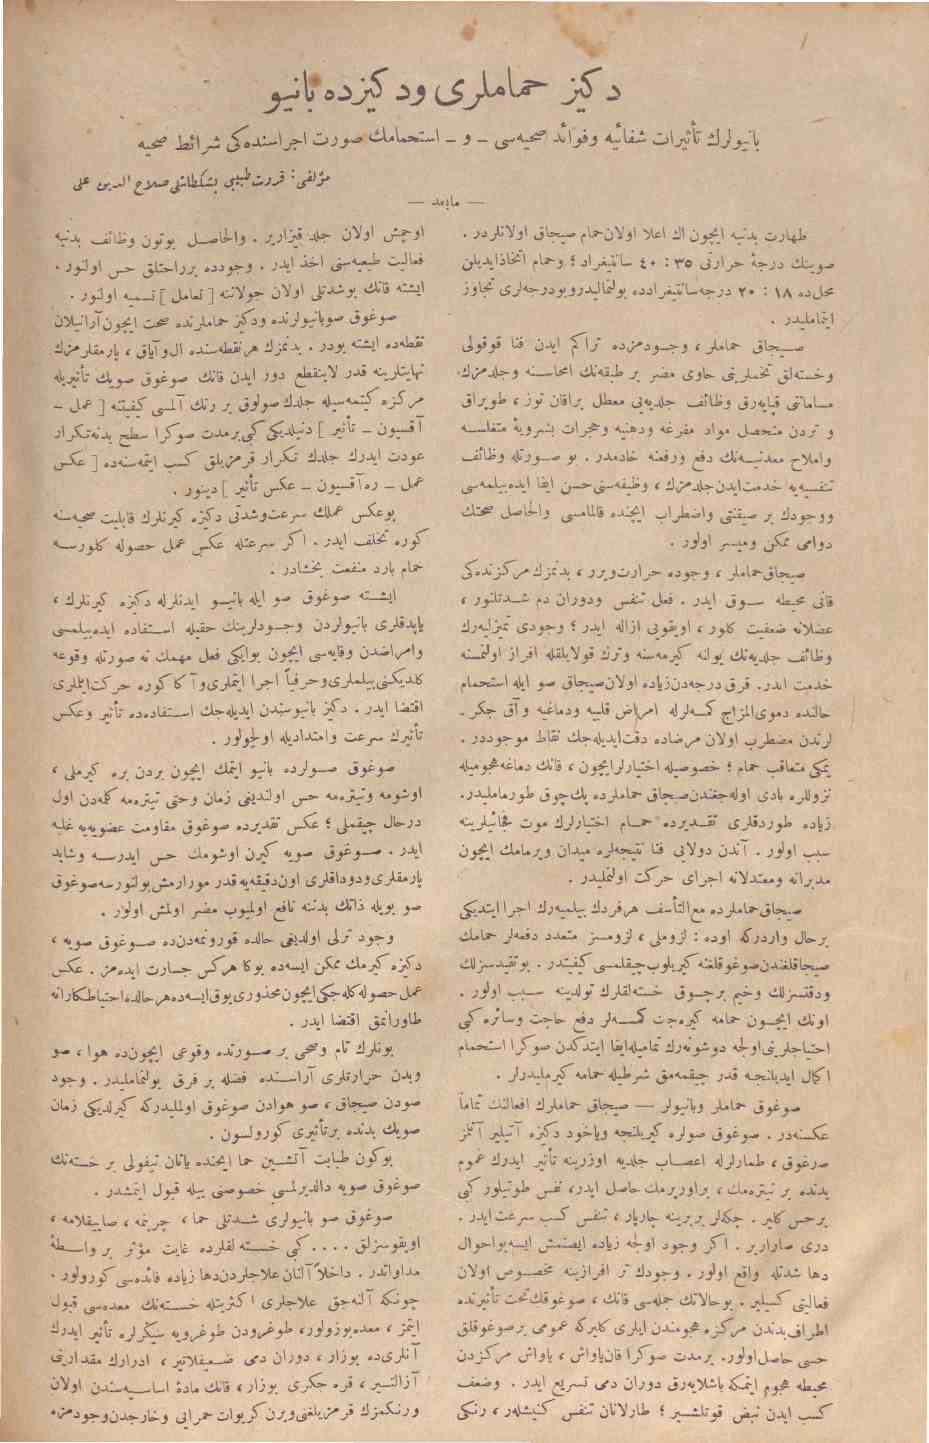 دكیز حماملری ودكیزده بانیو
بانیولرك تأثیرات شفائیه وفوائد صحیه‌سی ـ و ـ استحمامك صورت اجراسنده‌كی شرائط صحیه
مؤلفی: قره‌ت طبیبی بشكطاشلی صلاح الدین علی
— مابعد —
طهارت بدنیه ایچون اك اعلا اولان‌حمام صیجاق اولانلردر .
صوینك درجهٔ حرارتی ٣٥ : ٤٠ سانتیغراد؛ وحمام اتخاذایدیلن
محل‌ده ١٨ : ٢٠ درجه‌سانتیغرادده بولنمالیدروبودرجه‌لری تجاوز
ایتماملیدر .
صیجاق حماملر ، وجودمزده تراكم ایدن فنا قوقولی
وخسته‌لق تخملرینی حاوی مضر بر طبقه‌نك امحاسنه وجلدمزك
مساماتنی قپایه‌رق وظائف جلدیه‌یی معطل براقان توز ، طوپراق
و تردن متحصل مواد مفرغه ودهنیه وحجرات بشرویهٔ متفلسه
واملاح معدنیه‌نك دفع ورفعنه خادمدر. بو صورتله وظائف
تنفسیه‌یه خدمت‌ایدن‌جلدمزك ، وظیفه‌سنی‌حسن ایفا ایده‌بیلمه‌سی
ووجودك بر صیقنتی واضطراب ایچنده قالمامسی والحاصل صحتك
دوامی ممكن ومیسر اولور .
صیجاق‌حماملر ، وجوده حرارت‌ویرر ، بدنمزك مركزنده‌كی
قانی محیطه سوق ایدر . فعل تنفس ودوران دم شدتلنور ،
عضلاته ضعفیت كلور ، اویقویی ازاله ایدر؛ وجودی تمیزلیه‌رك
وظائف جلدیه‌نك یولنه كیرمه‌سنه وترك قولایلقله افراز اولنمسنه
خدمت ایدر. قرق درجه‌دن‌زیاده اولان‌صیجاق صو ایله استحمام
حالنده دموی‌المزاج كمسه‌لرله امراض قلبیه ودماغیه وآق جكر ـ
لرندن مضطرب اولان مرضاده دقت‌ایدیله‌جك نقاط موجوددر .
یمكی متعاقب حمام ؛ خصوصیله اختیارلرایچون ، قانك دماغه هجومیله
نزوللره بادی اوله‌جغندن‌صیجاق حماملرده پك‌چوق طورماملیدر.
زیاده طوردقلری تقدیرده حمام اختیارلرك موت فجائیلرینه
سبب اولور . آندن دولایی فنا نتیجه‌لره میدان ویرمامك ایچون
مدبرانه ومعتدلانه اجرای حركت اولنملیدر .
صیجاق‌حماملرده مع‌التأسف هرفردك بیلمیه‌رك اجرا ایتدیكی
برحال واردركه اوده : لزوملی ، لزومسز متعدد دفعه‌لر حمامك
صیجاقلغندن‌صوغوقلغنه كیریلوب‌چیقلمسی كیفیتدر. بوتقیدسزلك
ودقتسزلك وخیم برچوق خسته‌لقلرك تولدینه سبب اولور .
اونك ایچون حمامه كیره‌جك كمسه‌لر دفع حاجت وسائره كبی
احتیاجلرینی‌اولجه دوشونه‌رك تمامیله‌ایفا ایتدكدن صوكرا استحمام
اكمال ایدیلنجه قدر چیقمه‌مق شرطیله حمامه كیرملیدرلر .
صوغوق حماملر وبانیولر — صیجاق حماملرك افعالنك تماماً
عكسنه‌در. صوغوق صولره كیریلنجه ویاخود دكیزه آتیلیر آتلمز
صوغوق ، طمارلرله اعصاب جلدیه اوزرینه تأثیر ایدرك عموم
بدنده بر تیتره‌مك ، براورپرمك حاصل ایدر، نفس طوتیلور كبی
برحس كلیر. چكه‌لر بربرینه چارپار ، تنفس كسب سرعت ایدر.
دری صارارر . اكر وجود اولجه زیاده ایصنمش ایسه‌بواحوال
دها شدتله واقع اولور . وجودك تر افرازینه مخصوص اولان
فعالیتی كسیلیر . بوحالاتك جمله‌سی قانك ، صوغوغك‌تحت تأثیرنده
اطراف‌بدندن مركزه هجومندن ایلری كلیركه عمومی برصوغوقلق
حسی حاصل‌اولور. برمدت صوكرا قان‌یاواش ، یاواش مركزدن
محیطه هجوم ایتمكه باشلایه‌رق دوران دمی تسریع ایدر . وضعف
كسب ایدن نبض قوتلشیر ؛ طارلانان تنفس كنیشله‌ر ، رنكی
اوچمش اولان جلد قیزاریر . والحاصل بوتون وظائف بدنیه
فعالیت طبیعه‌سنی اخذ ایدر . وجودده برراحتلق حس اولنور.
ایشته قانك بوشدتلی اولان جولاننه [ تعامل ] تسمیه اولنور .
صوغوق صوبانیولرنده ودكیز حماملرنده صحت ایچون‌آرانیلان
نقطه‌ده ایشته بودر. بدنمزك هرنقطه‌سنده ال‌وآیاق ، پارمقلرمزك
نهایتلرینه قدر لاینقطع دور ایدن قانك صوغوق صویك تأثیریله
مركزه كیتمه‌سیله جلدك صولوق بر رنك آلمسی كیفیتنه [ عمل ـ
آقسیون ـ تأثیر ] دنیلدیكی كبی‌برمدت صوكرا سطح بدنه‌تكرار
عودت ایدرك جلدك تكرار قرمزیلق كسب ایتمه‌سنه‌ده [ عكس
عمل ـ ره‌آقسیون ـ عكس تأثیر ] دینور .
بوعكس عملك سرعت‌وشدتی دكیزه كیرنلرك قابلیت صحیه‌سنه
كوره تخلف ایدر . اكر سرعتله عكس عمل حصوله كلورسه
حمام بارد منفعت بخشادر .
ایشته صوغوق صو ایله بانیو ایدنلرله دكیزه كیرنلرك ،
یاپدقلری بانیولردن وجودلرینك حقیله استفاده ایده‌بیلمسی
وامراضدن وقایه‌سی ایچون بوایكی فعل مهمك نه صورتله وقوعه
كلدیكنی‌بیلملری‌وحرفیاً اجرا ایتملری‌وآ كا كوره حركت‌ایتملری
اقتضا ایدر. دكیز بانیوسندن ایدیله‌جك استفاده‌ده تأثیر وعكس
تأثیرك سرعت وامتدادیله اولچولور .
صوغوق صولرده بانیو ایتمك ایچون بردن بره كیرملی ،
اوشومه وتیتره‌مه حس اولندیغی زمان وحتی تیتره‌مه كلمه‌دن اول
درحال چیقملی؛ عكس تقدیرده صوغوق مقاومت عضویه‌یه غلبه
ایدر. صوغوق صویه كیرن اوشومك حس ایدرسه وشاید
پارمقلری‌ودوداقلری اون‌دقیقه‌یه‌قدر مورارمش‌بولنورسه‌صوغوق
صو بویله ذاتك بدننه نافع اولمیوب مضر اولمش اولور .
وجود ترلی اولدیغی حالده قورونمه‌دن‌ده صوغوق صویه ،
دكیزه كیرمك ممكن ایسه‌ده بوكا هركس جسارت ایده‌مز. عكس
عمل حصوله‌كله‌جكی‌ایچون‌محذوری‌یوق‌ایسه‌ده‌هرحالده‌احتیاطكارانه
طاورانمق اقتضا ایدر .
بونلرك تام وصحی بر صورتده وقوعی ایچون‌ده هوا ، صو
وبدن حرارتلری آراسنده فضله بر فرق بولنماملیدر . وجود
صودن صیجاق ، صو هوادن صوغوق اولملیدركه كیرلدیكی زمان
صویك بدنده برتأثیری كورولسون .
بوكون طبابت آتشین حما ایچنده یاتان تیفولی بر خسته‌نك
صوغوق صویه دالدیرلمسی خصوصنی بیله قبول ایتمشدر .
صوغوق صو بانیولری شدتلی حما ، چرپنمه ، صاییقلامه ،
اویقوسزلق .... كبی خسته‌لقلرده غایت مؤثر بر واسطهٔ
مداواتدر. داخلاً آلنان علاجلردن‌دها زیاده فائده‌سی كورولور.
چونكه آلنه‌جق علاجلری اكثریتله خسته‌نك معده‌سی قبول
ایتمز ، معده‌بوزولور، طوغرودن طوغرویه سیكرلره تأثیر ایدرك
آنلری‌ده بوزار ، دوران دمی ضعیفلاتیر ، ادرارك مقدارینی
آزالتیر ، قره جكری بوزار ، قانك مادهٔ اساسیه‌سندن اولان
ورنكمزك قرمزیلغنی‌ویرن كریوات حمرایی وخارجدن‌وجودمزه